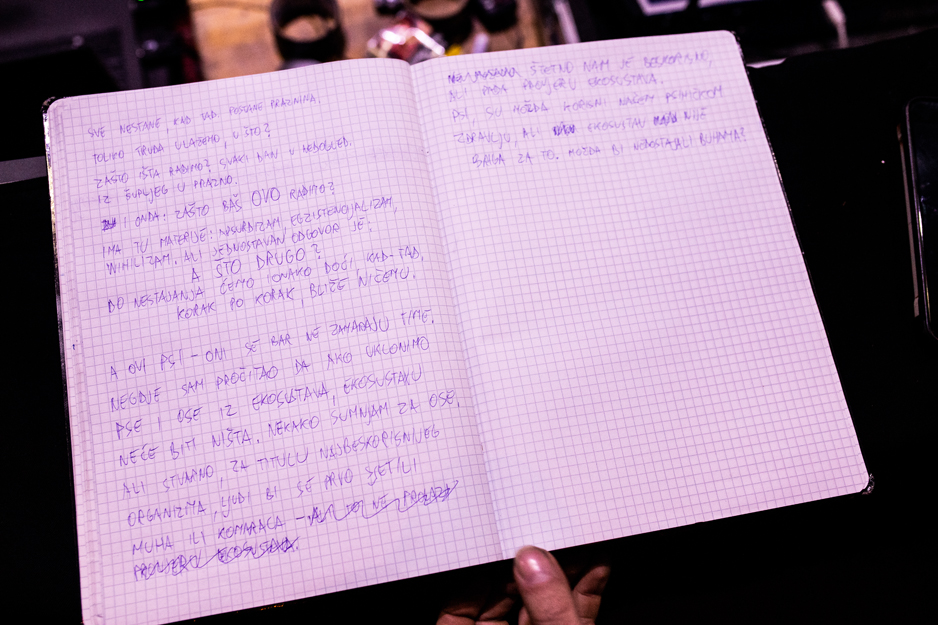 SVE NESTANE, KAD TAD POSTANE PRAZNINA.
TOLIKO TRUDA ULAŽEMO, U ŠTO?
ZAŠTO IŠTA RADIMO? SVAKI DAN U NEDOGLED.
IZ ŠUPLJEG U PRAZNO.
I ONDA: ZAŠTO BAŠ OVO RADIMO?
IMA TU MATERIJE: APSURDIZAM, EGZISTENCIJALIZAM,
NIHILIZAM. ALI JEDNOSTAVAN ODGOVOR JE:
A ŠTO DRUGO?
DO NESTAJANJA ĆEMO IONAKO DOĆI KAD-TAD,
KORAK PO KORAK, BLIŽE NIČEMU.
A OVI PSI - ONI SE BAR NE ZAMARAJU TIME.
NEGDJE SAM PROČITAO DA AKO UKLONIMO
PSE I OSE IZ EKOSUSTAVA, EKOSUSTAVU
NEĆE BITI NIŠTA. NEKAKO SUMNJAM ZA OSE,
ALI STVARNO, ZA TITULU NAJBESKORISNIJEG
ORGANIZMA, LJUDI BI SE PRVO SJETILI
MUHA ILI KOMARACA -
ŠTETNO NAM JE BESKORISNO,
ALI PADA PROVJERU EKOSUSTAVA.
PSI SU MOŽDA KORISNI NAŠEM PSIHIČKOM
ZDRAVLJU, ALI EKOSUSTAV NIJE
BRIGA ZA TO. MOŽDA BI NEDOSTAJALI BUHAMA?